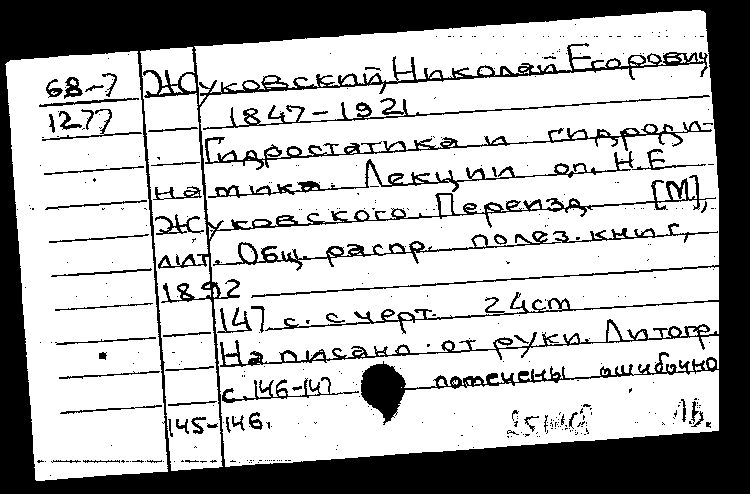 68-7 Жуковский, Николай Егорович
1277 1847-1921.
Гидростатика и гидроди-
намика. Лекции орд. Н.Е.
Жуковского. Переизд. [М],
лит. Общ. распр. полез. книг,
1892
147 с. с черт. 24cm
Написано от руки. Литогр.
с. 146-147 помечены ошибочно
145-146.
1б.